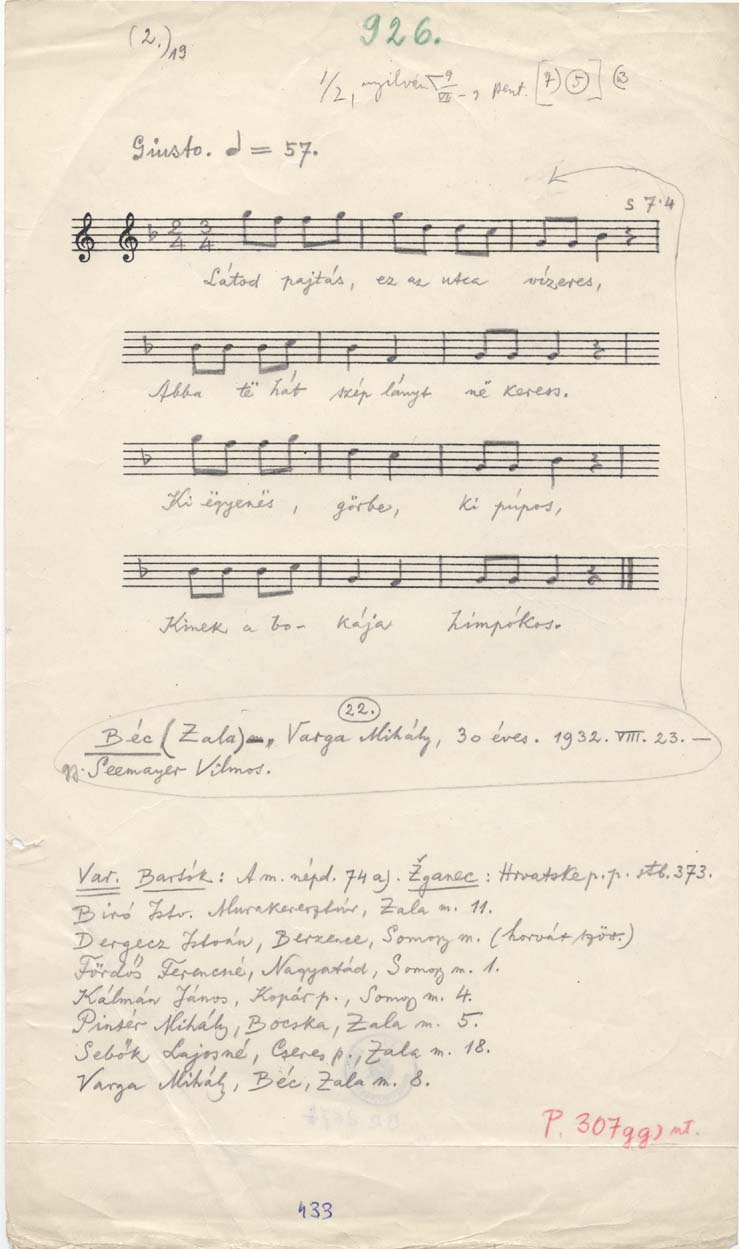 (2.)19
926.
1/2, nyilván 9/VII – 9 pent. [7) (5)]
Giusto. = 57.
s 7·4
2/4 3/4
Látod pajtás, ez az utca vízeres,
Abba të hát szép lányt në keress.
Ki ëgyenës, görbe, ki púpos,
Kinek a bo- kája himpókos.
22.
Béc (Zala) – „ Varga Mihály, 30 éves. 1932. VIII. 23. –
gy. Seemayer Vilmos.
Var. Bartók: A m. népd. 74 a). Žganec: Hrvatske p. p. stb. 373.
Biró Istv. Murakeresztúr, Zala m. 11.
Dergecz István, Berzence, Somogy m. (horvát szöv.)
Fördős Ferencné, Nagyatád, Somogy m. 1.
Kálmán János, Kopár p., Somogy m. 4.
Pintér Mihály, Bocska, Zala m. 5.
Sebők Lajosné, Cseres p., Zala m. 18.
Varga Mihály, Béc, Zala m. 8.
P. 307gg) mt.
433